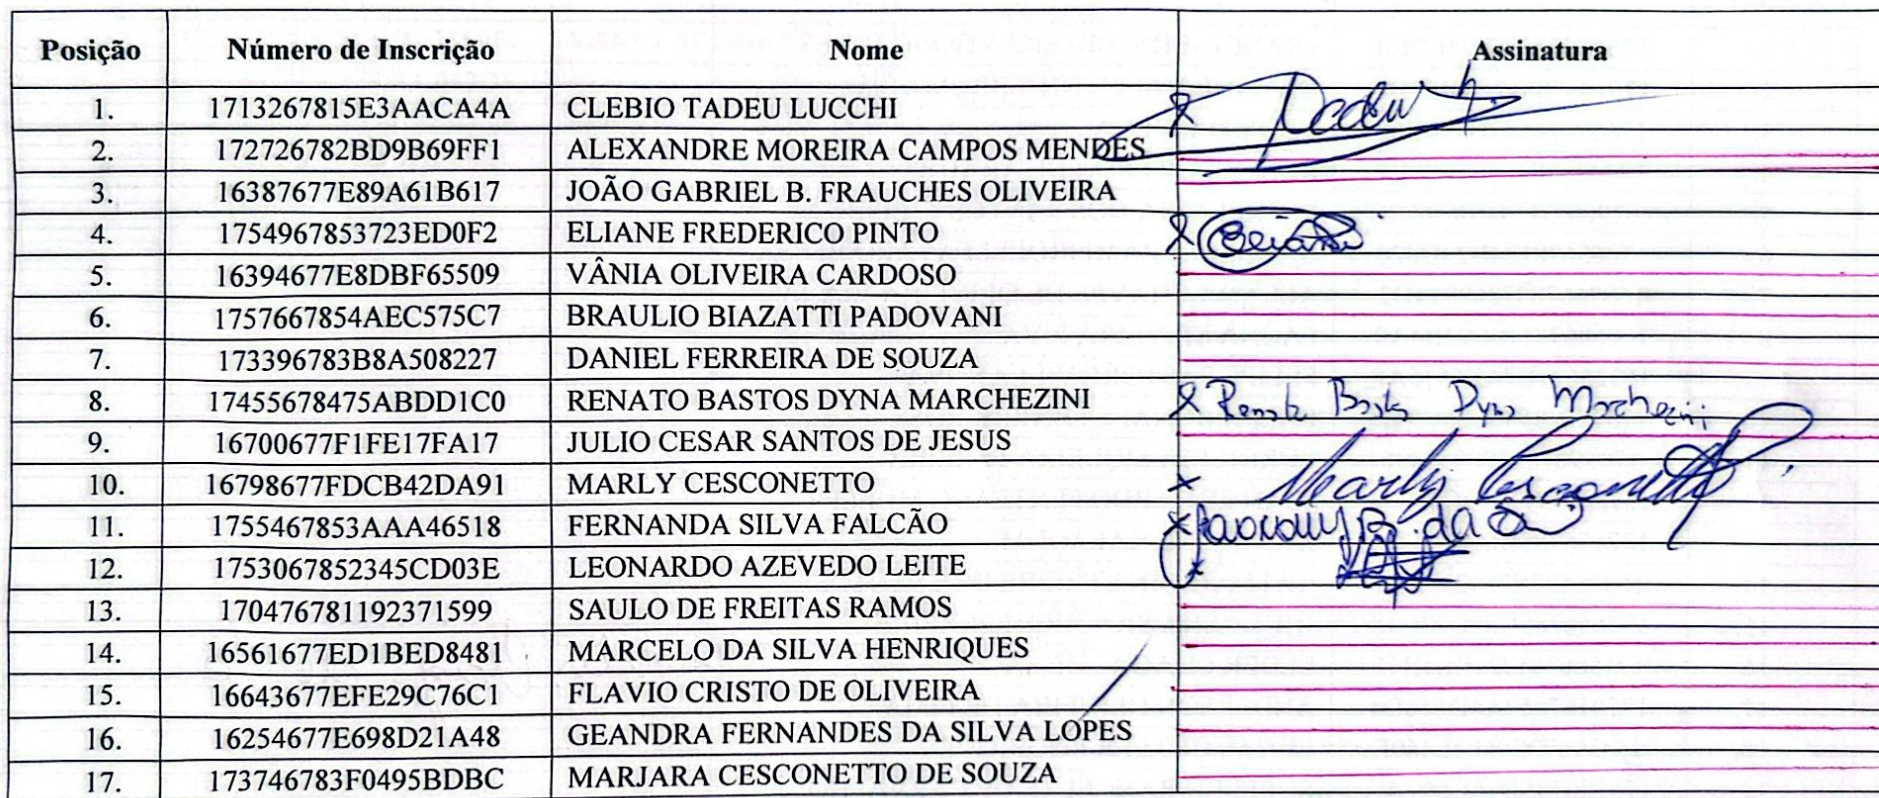 Posição Número de Inscrição Nome Assinatura
1. 1713267815E3AACA4A CLEBIO TADEU LUCCHI x Tadeu
2. 172726782BD9B69FF1 ALEXANDRE MOREIRA CAMPOS MENDES
3. 16387677E89A61B617 JOÃO GABRIEL B. FRAUCHES OLIVEIRA
4. 1754967853723ED0F2 ELIANE FREDERICO PINTO x
5. 16394677E8DBF65509 VÂNIA OLIVEIRA CARDOSO
6. 1757667854AEC575C7 BRAULIO BIAZATTI PADOVANI
7. 173396783B8A508227 DANIEL FERREIRA DE SOUZA
8. 17455678475ABDD1C0 RENATO BASTOS DYNA MARCHEZINI x Renato Bastos Dyna Marchezini
9. 16700677F1FE17FA17 JULIO CESAR SANTOS DE JESUS
10. 16798677FDCB42DA91 MARLY CESCONETTO x Marly Cesconetto
11. 1755467853AAA46518 FERNANDA SILVA FALCÃO x
12. 1753067852345CD03E LEONARDO AZEVEDO LEITE x
13. 170476781192371599 SAULO DE FREITAS RAMOS
14. 16561677ED1BED8481 MARCELO DA SILVA HENRIQUES
15. 16643677EFE29C76C1 FLAVIO CRISTO DE OLIVEIRA
16. 16254677E698D21A48 GEANDRA FERNANDES DA SILVA LOPES
17. 173746783F0495BDBC MARJARA CESCONETTO DE SOUZA